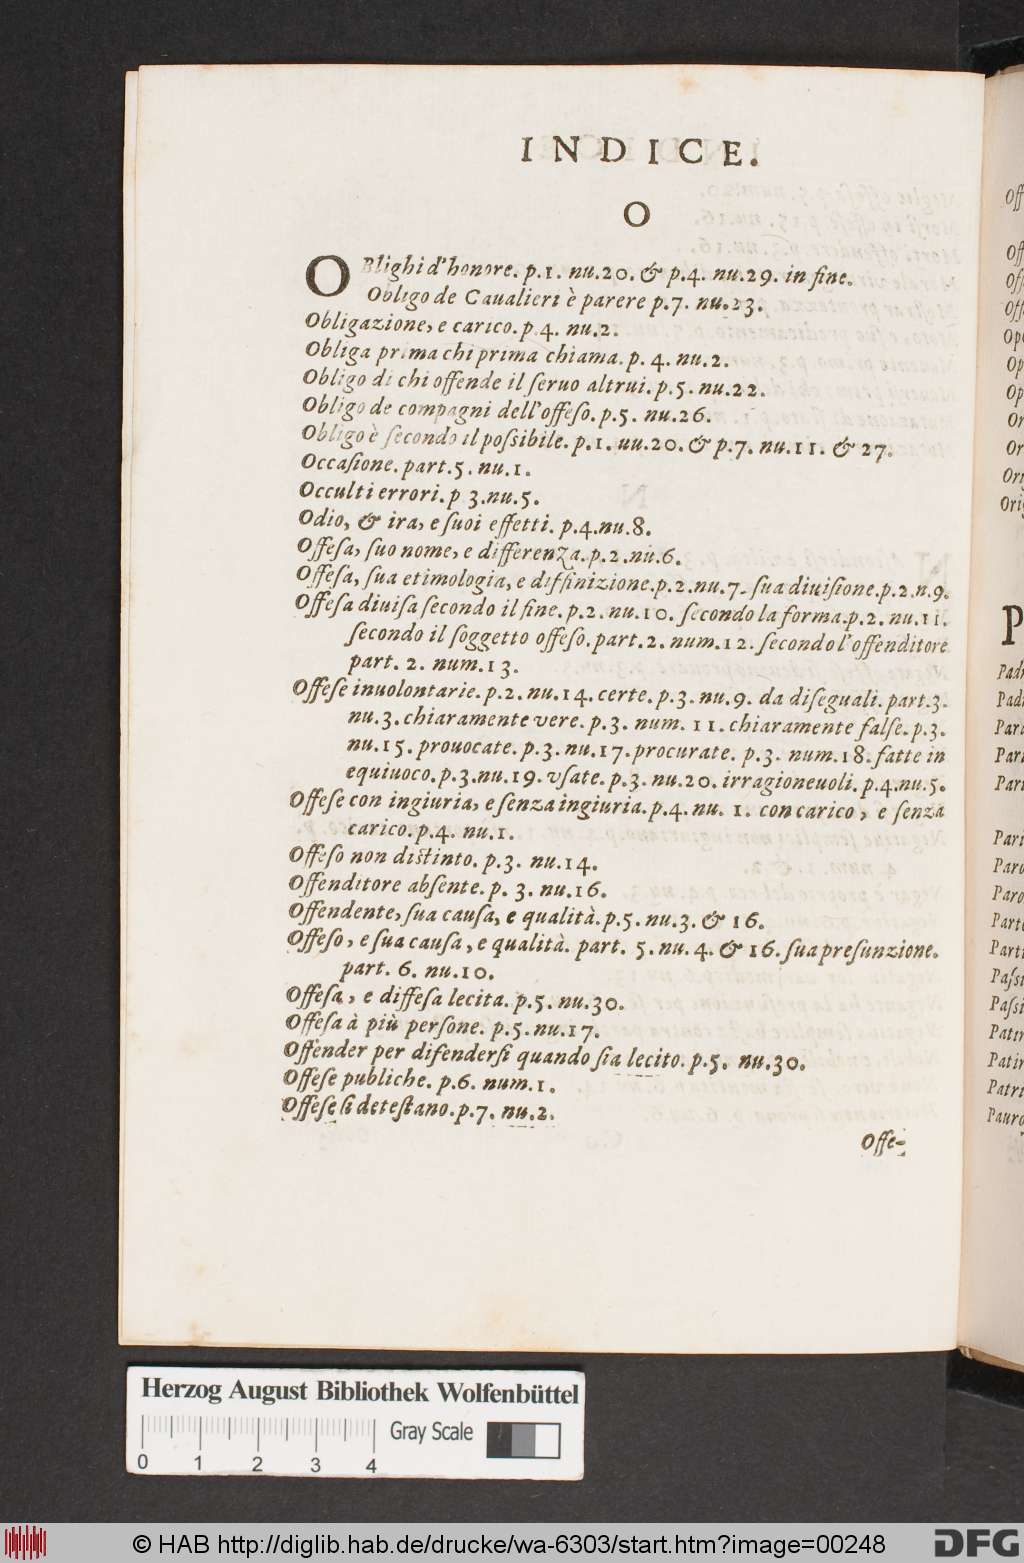 INDICE.
O
OBlighi d'honore. p.1. nu.20. & p.4. nu.29. in fine.
Obligo de Caualieri è parere p.7. nu.23.
Obligazione, e carico. p.4. nu.2.
Obliga prima chi prima chiama. p. 4. nu.2.
Obligo di chi offende il ſeruo altrui. p.5. nu.22.
Obligo de compagni dell'offeſo. p.5. nu.26.
Obligo è ſecondo il poſsibile. p.1. uu.20. & p.7. nu.11. & 27.
Occaſione. part.5. nu.1.
Occulti errori. p 3.nu.5.
Odio, & ira, e ſuoi effetti. p.4.nu.8.
Offeſa, ſuo nome, e differenza. p.2.nu.6.
Offeſa, ſua etimologia, e diffinizione.p.2.nu.7. ſua diuiſione.p.2.n.9.
Offeſa diuiſa ſecondo il fine. p.2. nu.10. ſecondo la forma.p.2. nu.11.
ſecondo il ſoggetto offeſo. part.2. num.12. ſecondo l'offenditore
part. 2. num.13.
Offeſe inuolontarie. p.2. nu.14. certe. p.3. nu.9. da diſeguali. part.3.
nu.3. chiaramente vere. p.3. num. 11. chiaramente falſe. p.3.
nu.15. prouocate. p.3. nu.17. procurate. p.3. num.18. fatte in
equiuoco. p.3.nu.19. vſate. p.3. nu.20. irragioneuoli. p.4.nu.5.
Offeſe con ingiuria, e ſenza ingiuria. p.4. nu. 1. con carico, e ſenza
carico. p.4. nu.1.
Offeſo non diſtinto. p.3. nu.14.
Offenditore abſente. p. 3. nu.16.
Offendente, ſua cauſa, e qualità. p.5. nu.3. & 16.
Offeſo, e ſua cauſa, e qualità. part. 5. nu. 4. & 16. ſua preſunzione.
part. 6. nu.10.
Offeſa, e diffeſa lecita. p.5. nu.30.
Offeſa à più perſone. p.5. nu.17.
Offender per difenderſi quando ſia lecito. p.5. nu.30.
Offeſe publiche. p.6. num.1.
Offeſe ſi deteſtano. p.7. nu.2.
Offe-
Off
Off
Off
Offe
Ope
Op
Op
Or
Or
Orig
Orig
P
Padr
Padr
Para
Pari
Pari
Pari
Paro
Paro
Parte
Parti
Paſsi
Paſsi
Patir
Patir
Patri
Pauro
Herzog August Bibliothek Wolfenbüttel
Gray Scale
0 1 2 3 4
© HAB http://diglib.hab.de/drucke/wa-6303/start.htm?image=00248
DFG